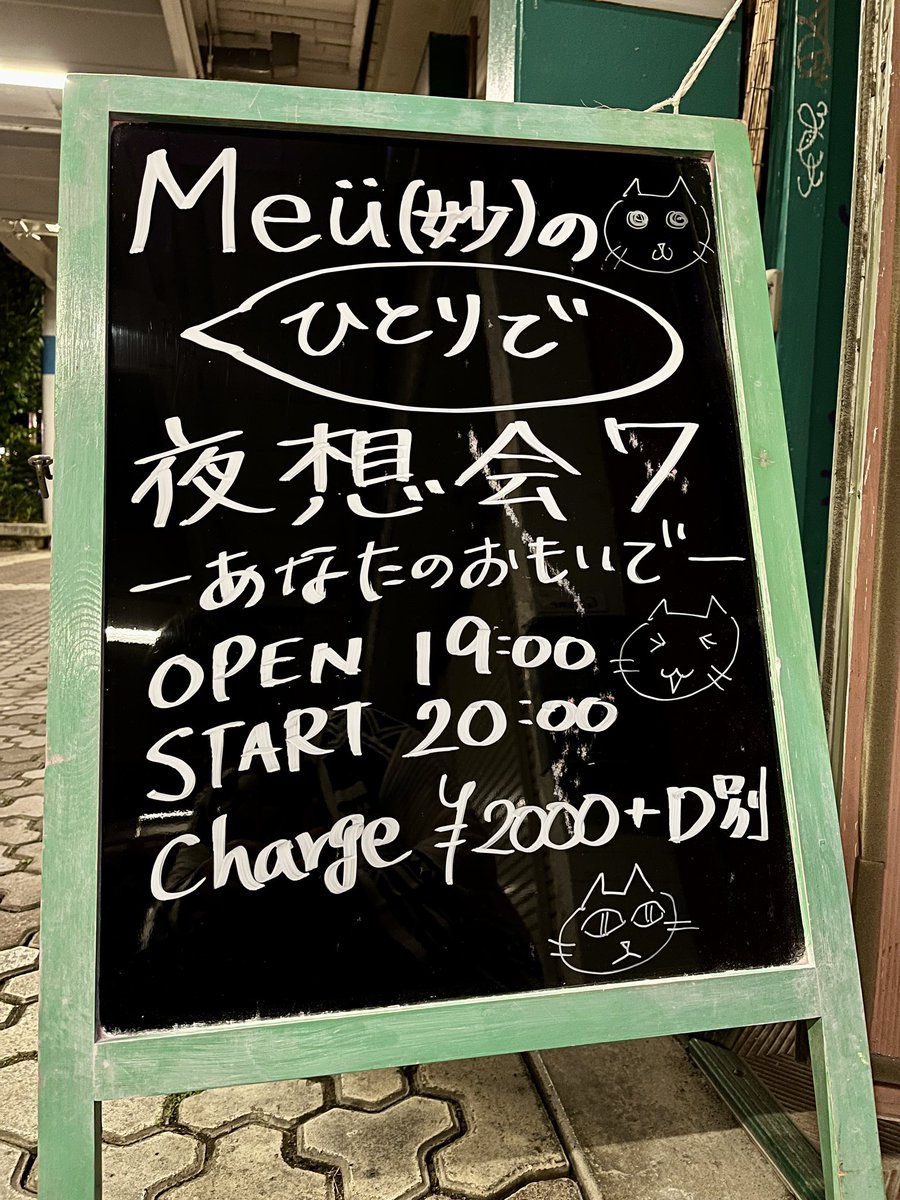 Meü(妙)の
ひとりで
夜想会7
-あなたのおもいで-
OPEN 19:00
START 20:00
Charge ¥2000+D別